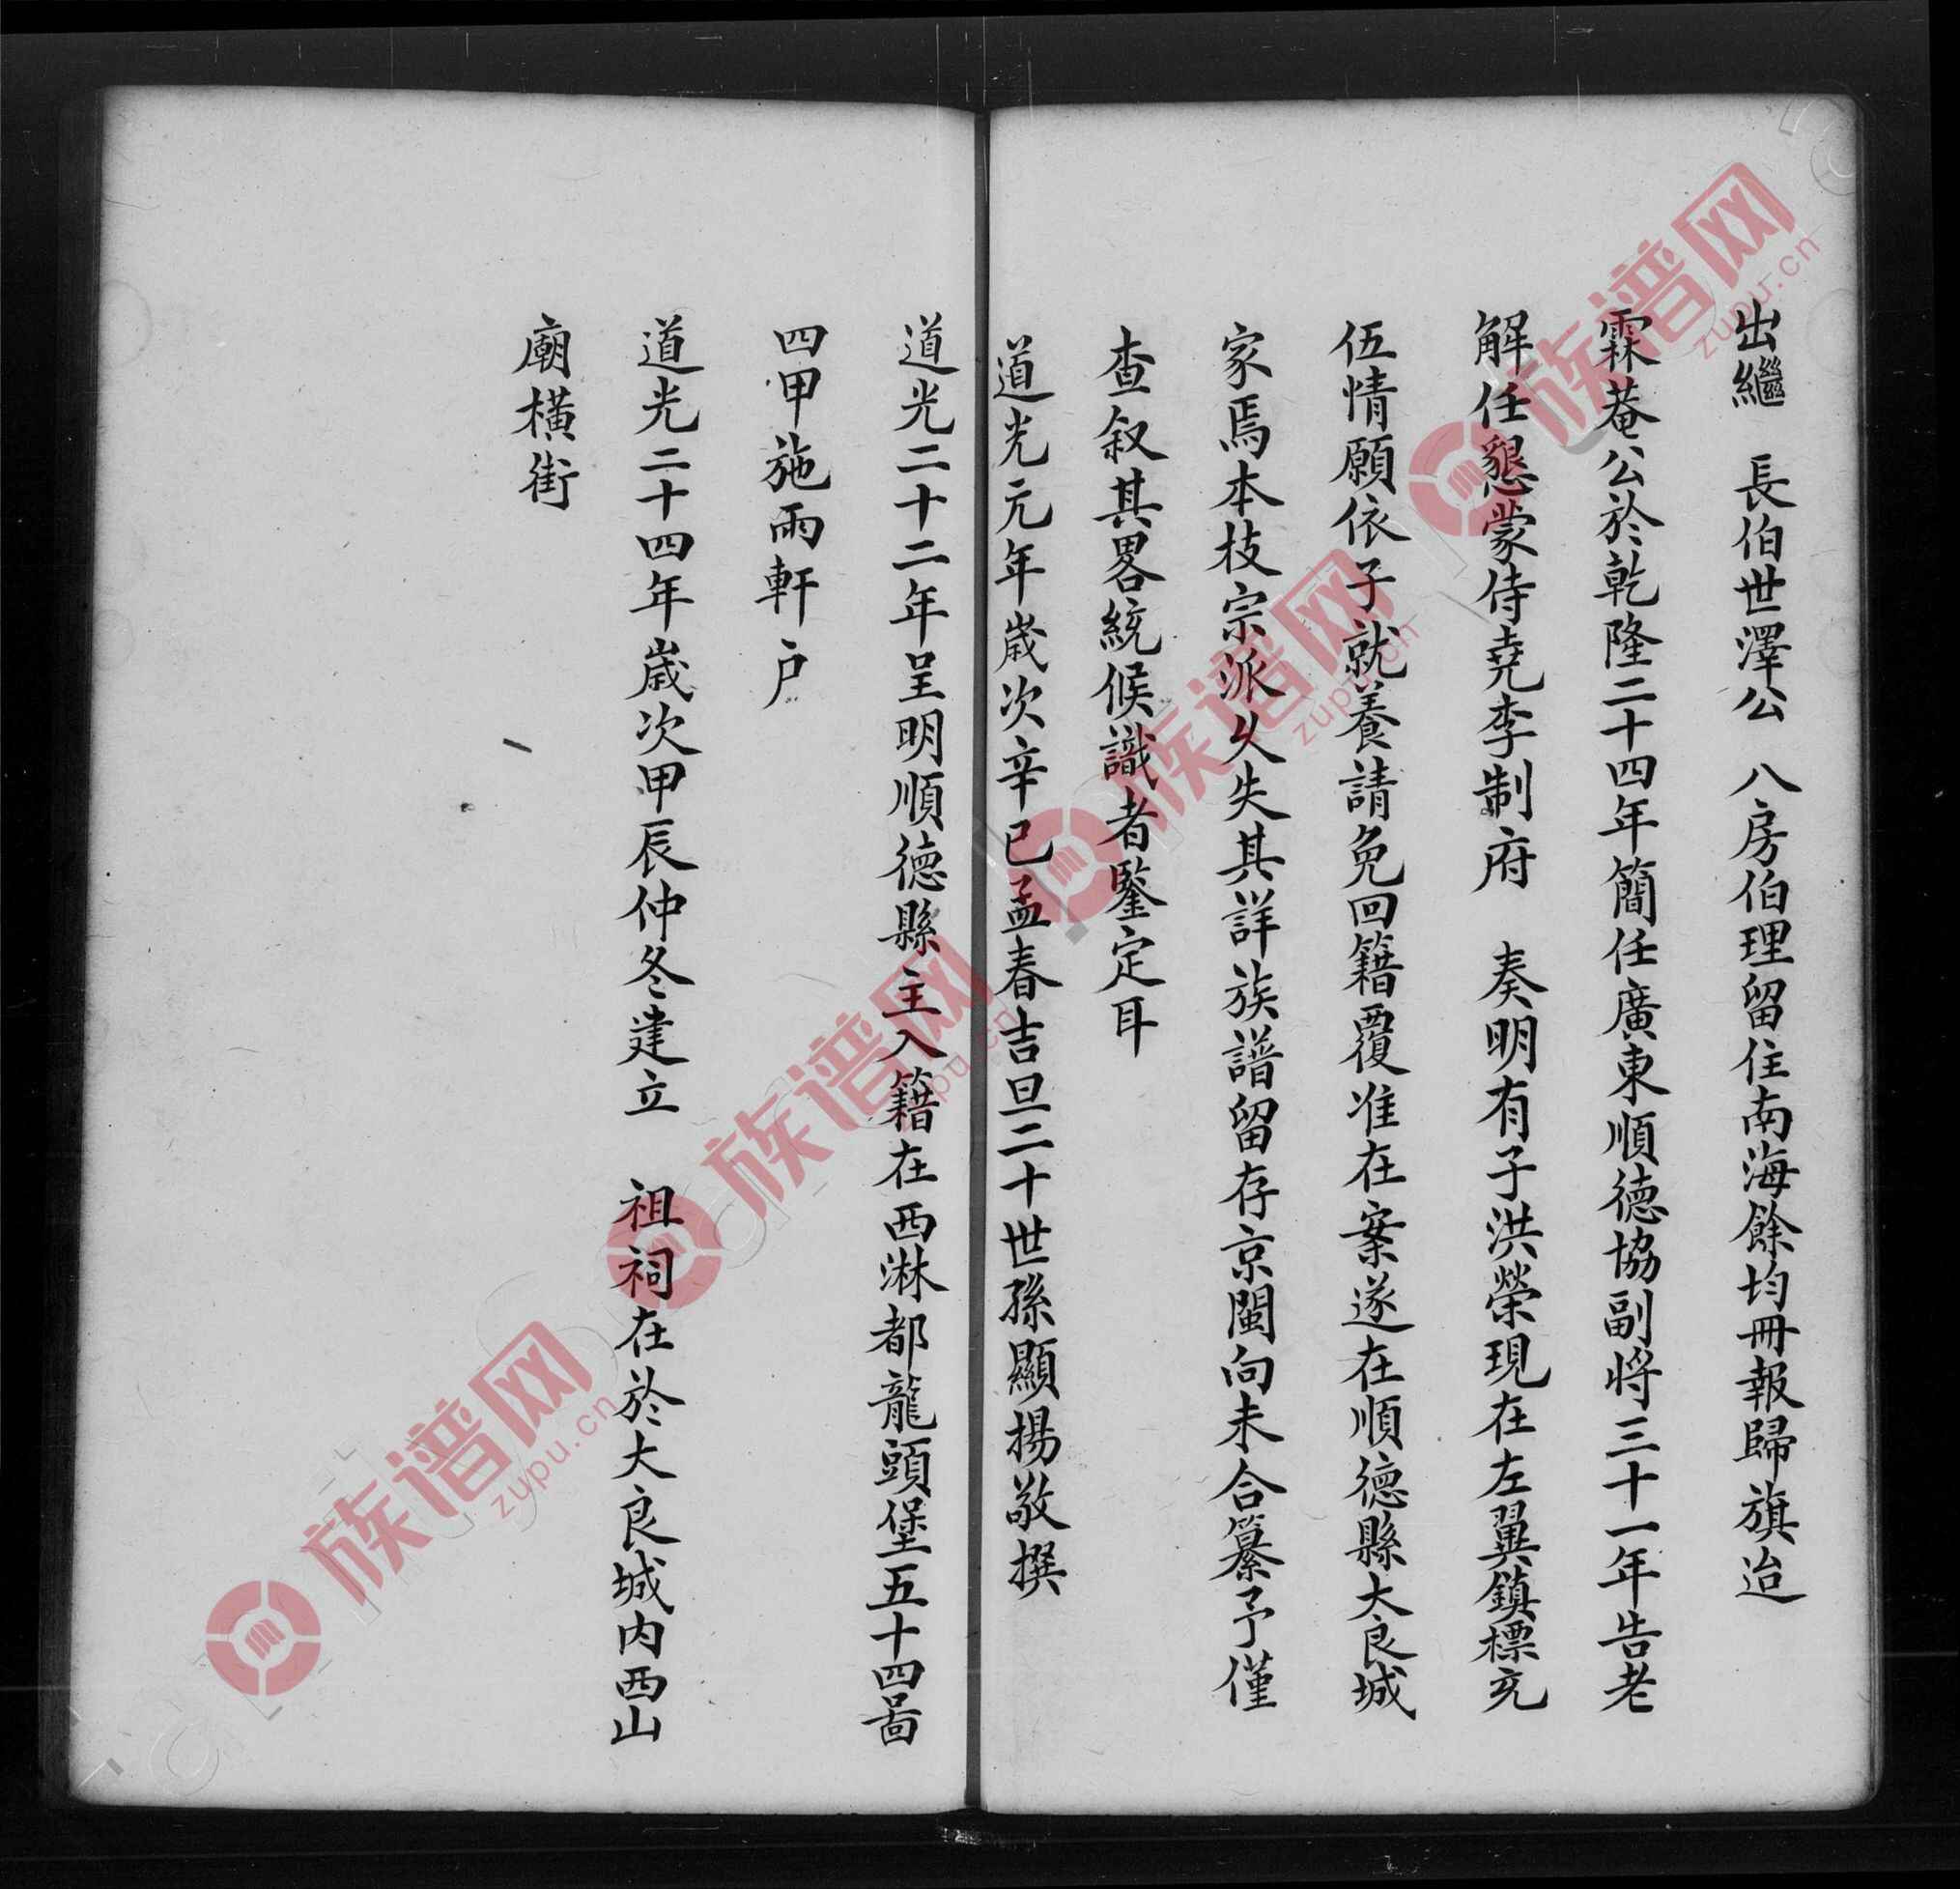 出繼　長伯世澤公　八房伯理留住南海餘均冊報歸旗迨
霖菴公於乾隆二十四年簡任廣東順德協副將三十一年告老
解任懇蒙侍堯李制府　奏明有子洪榮現在左翼鎮標充
伍情願依子就養請免回籍覆准在案遂在順德縣大良城
家焉本枝宗派久失其詳族譜留存京閩向未合纂予僅
查叙其畧統候識者鑒定耳
道光元年歲次辛巳孟春吉旦二十世孫顯揚敬撰
道光二十二年呈明順德縣主入籍在西淋都龍頭堡五十四啚
四甲施雨軒户
道光二十四年歲次甲辰仲冬建立　祖祠在於大良城内西山
廟橫街
族谱网
zupu.cn
族谱网
zupu.cn
族谱网
zupu.cn
族谱网
zupu.cn